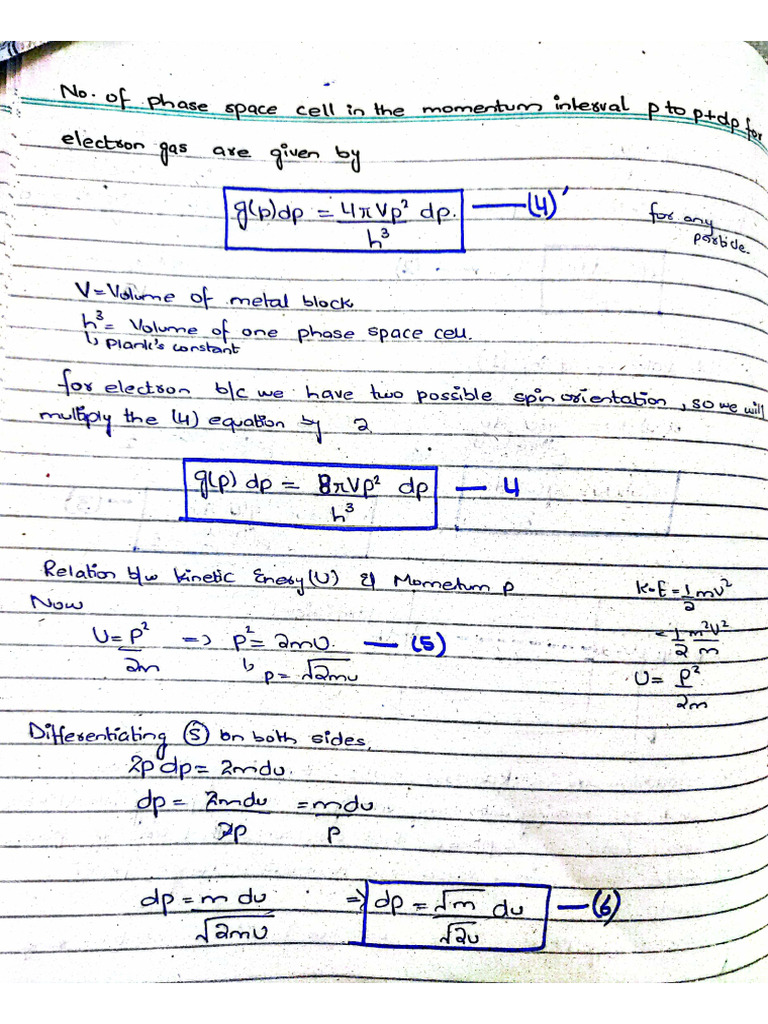 No. of phase space cell in the momentum interval p to p+dp for
electron gas are given by
g(p)dp = 4πVp² dp. —(4)'
h³
for any
particle.
V=Volume of metal block
h³= Volume of one phase space cell.
↳ Plank's constant
for electron b/c we have two possible spin orientation, so we will
multiply the (4) equation by 2
g(p) dp = 8πVp² dp — 4
h³
Relation b/w kinetic Enesy(U) & Mometum p
K.E = 1/2 mv²
Now
U = P²/2m => p² = 2mU. — (5)
= 1/2 m²v²/m
↳ p = √2mu
U = P²/2m
Differentiating (5) on both sides,
2p dp = 2mdu.
dp = 2mdu/2p = mdu/p
dp = m du/√2mu => dp = √m/√2u du — (6)